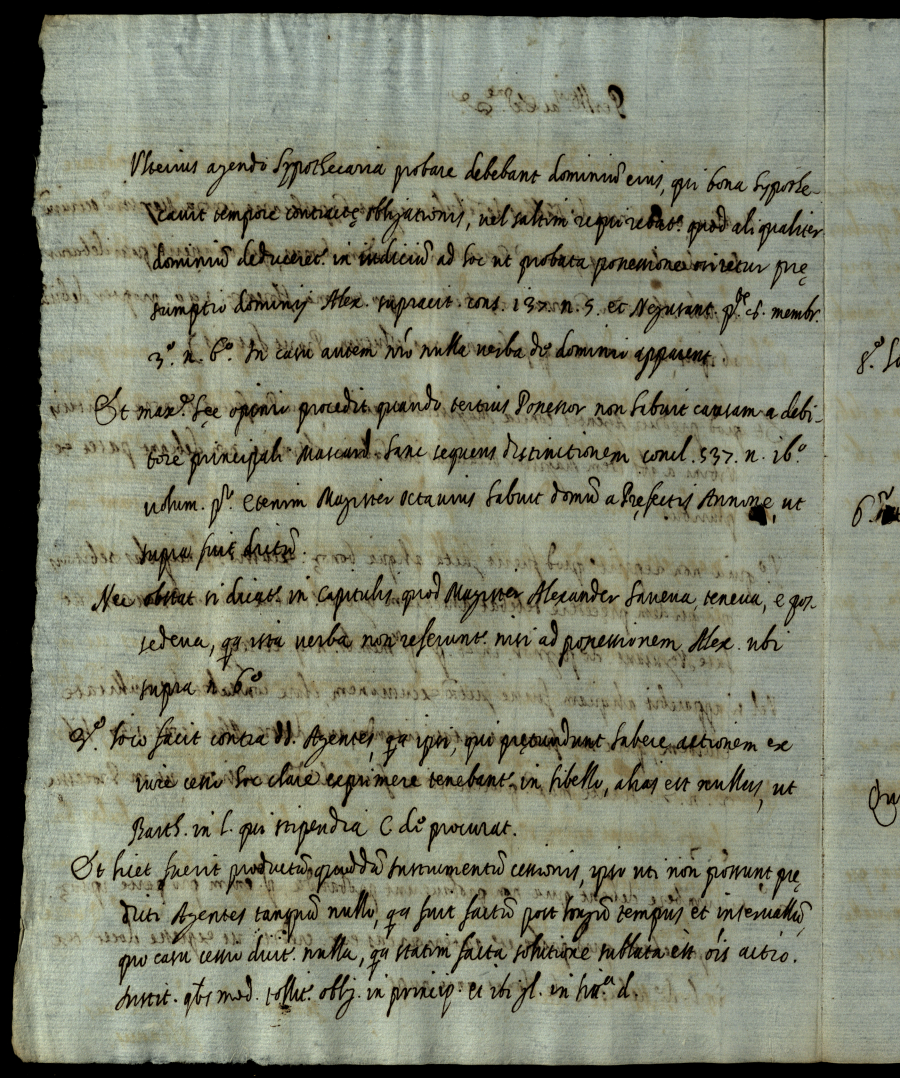 Ulterius agendo Hypothecaria probare debebant dominiũ eius, qui bona Hypothe-
cavit tempore contractę obligationis, vel saltim requirebat.r quod aliqualiter
dominiũ deduceret.r in iudiciũ ad hoc ut probata possessione oriretur prę
sumptio dominij Alex. supracit. cons. 137. n. 5. et Negusant. p.te 6. membr.
3.º n. 6.º. In casu autem nr̃o nulla verba de dominio apparent.
Et max.e hęc opinio procedit quando tertius Possessor non habuit causam a debi-
tore principali Mascard. hanc sequens distinctionem concl. 537. n. 16.º
volum. p.º etenim Magister Octavius habuit domũ a Pręfectis Annonę, ut
supra fuit dictũ.
Nec obstat si dicat.r in Capitulis, quod Magister Alexander haveva, teneva, e pos-
sedeva, q.a ista verba non referunt.r nisi ad possessionem Alex. ubi
supra n. 6.º
3.º hoc facit contra DD. Agentes, q.a ipsi, qui pręte͂dunt habere actionem ex
iure cesso hoc clare exprimere tenebant.r in libello, alias est nullus, ut
Barth. in l. qui stipendia C. de procurat.
Et licet fuerit productũ quoddã Instrumentũ cessionis, ipso uti non possunt prę
dicti Agentes tanquã nullo, q.a fuit factũ post longũ tempus et intervallũ,
quo casu cessio dicit.r nulla, q.a statim facta solutione sublata est oĩs actio.
Instit. qbs mod. tollit.r obl. in princip. et ibi gl. in
8.º
6.º